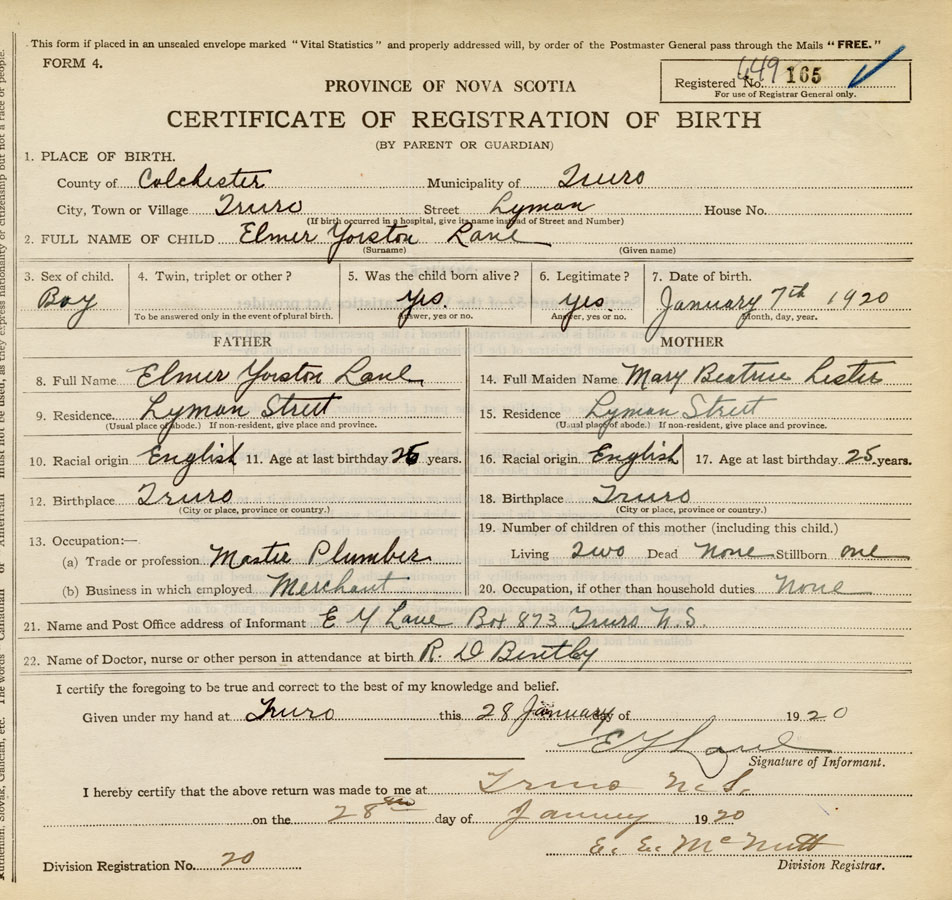 This form if placed in an unsealed envelope marked "Vital Statistics" and properly addressed will, by order of the Postmaster General pass through the Mails "FREE."
FORM 4.
Registered No. 449 165
For use of Registrar General only.
PROVINCE OF NOVA SCOTIA
CERTIFICATE OF REGISTRATION OF BIRTH
(BY PARENT OR GUARDIAN)
1. PLACE OF BIRTH.
County of Colchester Municipality of Truro
City, Town or Village Truro Street Lyman House No.
(If birth occurred in a hospital, give its name instead of Street and Number)
2. FULL NAME OF CHILD Elmer Yorston Lane
(Surname) (Given name)
3. Sex of child. 4. Twin, triplet or other? 5. Was the child born alive? 6. Legitimate? 7. Date of birth.
Boy yes. yes January 7th 1920
To be answered only in the event of plural birth. Answer, yes or no. Answer, yes or no. Month, day, year.
FATHER MOTHER
8. Full Name Elmer Yorston Lane 14. Full Maiden Name Mary Beatrice Lester
9. Residence. Lyman Street 15. Residence Lyman Street
(Usual place of abode.) If non-resident, give place and province. (Usual place of abode.) If non-resident, give place and province.
10. Racial origin English 11. Age at last birthday years. 16. Racial origin English 17. Age at last birthday 25. years.
12. Birthplace Truro 18. Birthplace Truro
(City or place, province or country.) (City or place, province or country.)
19. Number of children of this mother (including this child.)
13. Occupation:—
(a) Trade or profession Master Plumber Living two Dead None Stillborn one
(b) Business in which employed Merchant 20. Occupation, if other than household duties None
21. Name and Post Office address of Informant E Y Lane Box 873 Truro N.S.
22. Name of Doctor, nurse or other person in attendance at birth R. D Bentley
I certify the foregoing to be true and correct to the best of my knowledge and belief.
Given under my hand at Truro this 28 January day of 1920
E Y Lane
Signature of Informant.
I hereby certify that the above return was made to me at Truro N.S.
on the 28th day of January 1920
E. E. McNutt
Division Registration No. 20 Division Registrar.